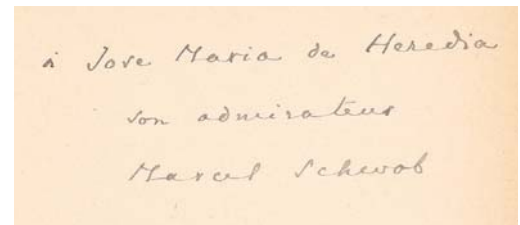 à Jose Maria de Heredia
son admirateur
Marcel Schwob